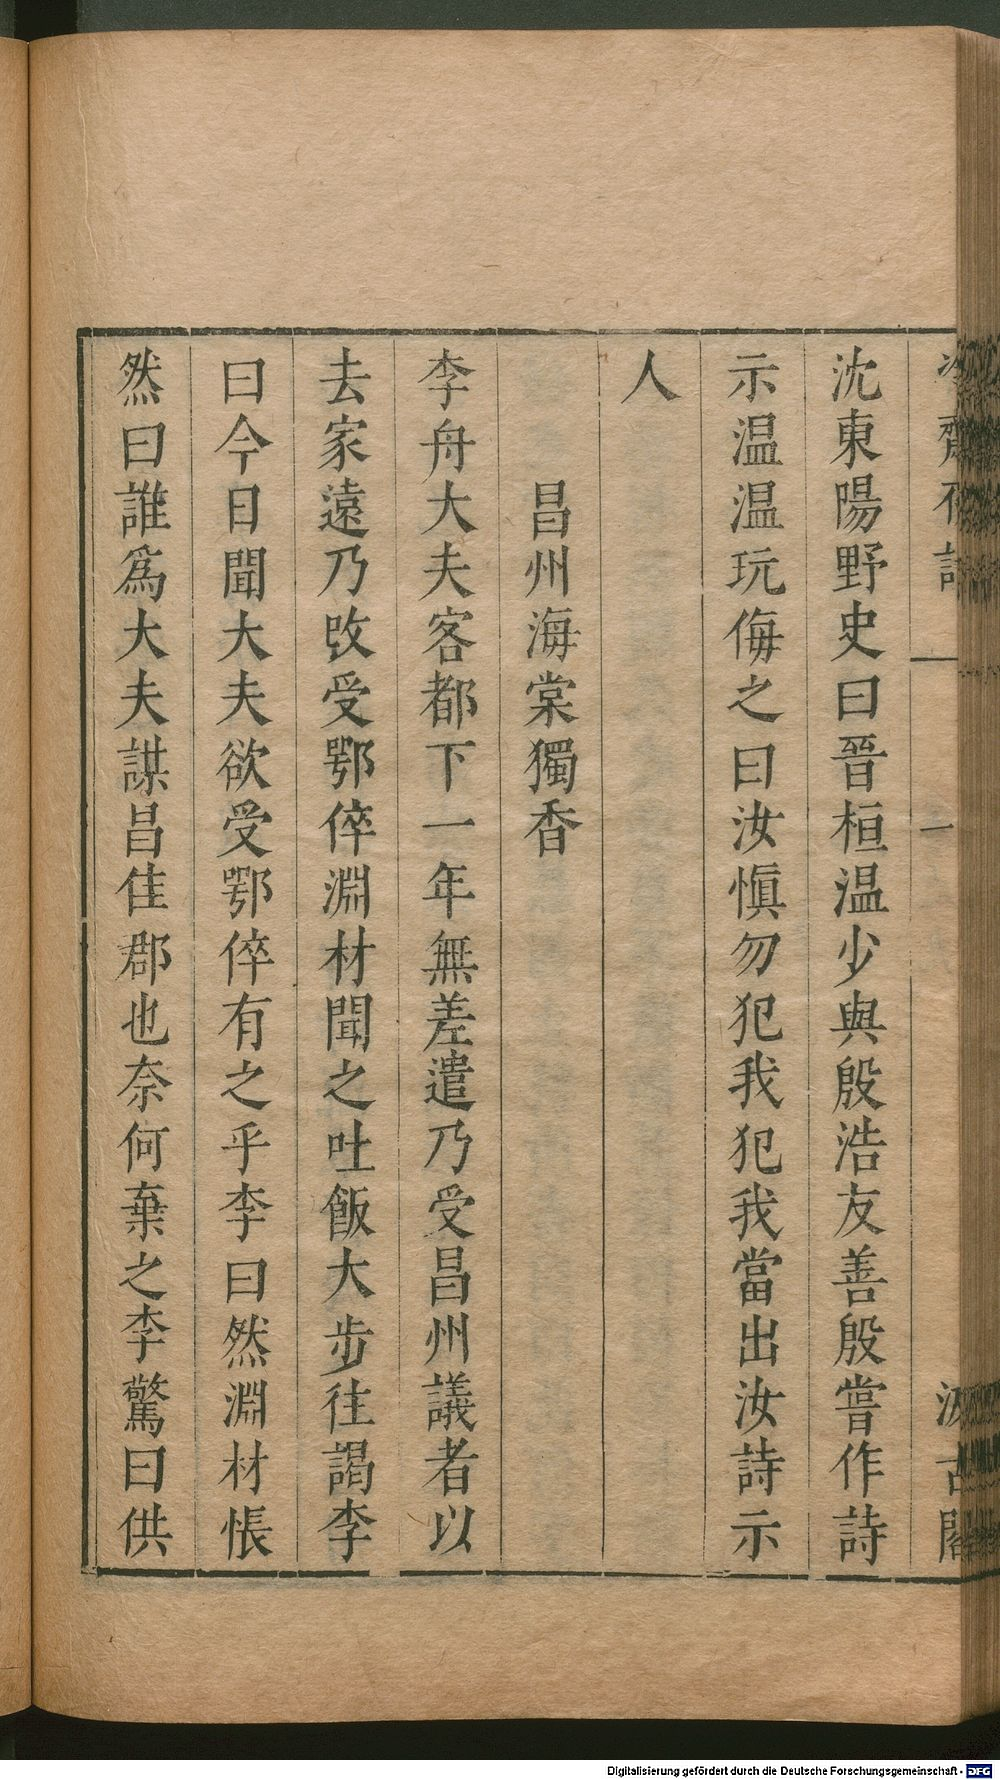 冷齋夜話
一
汲古閣
沈東陽野史曰晉桓温少與殷浩友善殷嘗作詩
示温温玩侮之曰汝愼勿犯我犯我當出汝詩示
人
昌州海棠獨香
李舟大夫客都下一年無差遣乃受昌州議者以
去家遠乃改受鄂倅淵材聞之吐飯大步往謁李
曰今日聞大夫欲受鄂倅有之乎李曰然淵材悵
然曰誰爲大夫謀昌佳郡也奈何棄之李驚曰供
Digitalisierung gefördert durch die Deutsche Forschungsgemeinschaft - DFG